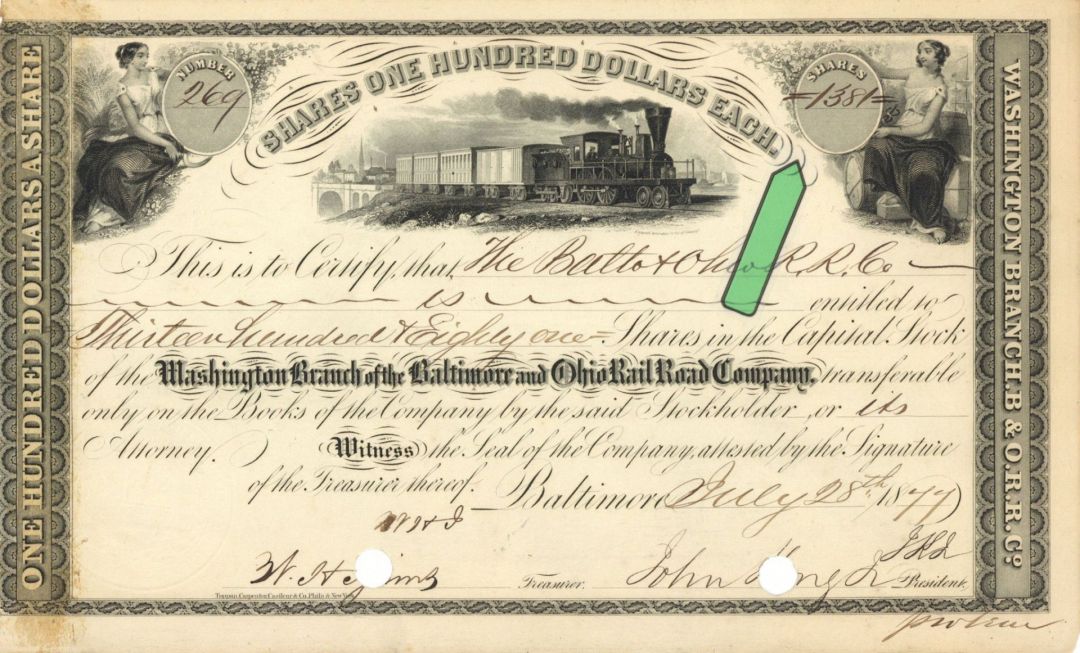 ONE HUNDRED DOLLARS A SHARE
NUMBER
269
SHARES ONE HUNDRED DOLLARS EACH.
SHARES
=1381=
WASHINGTON BRANCH. B & O. R. R. Co.
This is to Certify, that The Balto & Ohio R. R. Co
is entitled to
Thirteen hundred & Eighty one = Shares in the Capital Stock
of the Washington Branch of the Baltimore and Ohio Rail Road Company, transferable
only on the Books of the Company by the said Stockholder, or its
Attorney. Witness the Seal of the Company, attested by the Signature
of the Treasurer thereof. Baltimore July 28th 1877
W. H. Treasurer.
John King Jr President,
Toppan, Carpenter, Casilear & Co. Phila. & New York.